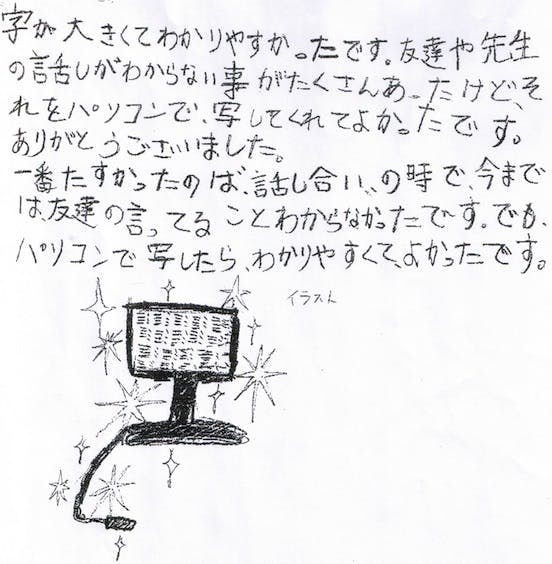 字が大きくてわかりやすかったです。友達や先生
の話しがわからない事がたくさんあったけど、そ
れをパソコンで、写してくれてよかったです。
ありがとうございました。
一番たすかったのは、話し合いの時で、今まで
は、友達の言ってることわからなかったです。でも、
パソコンで写したら、わかりやすくて、よかったです。
イラスト